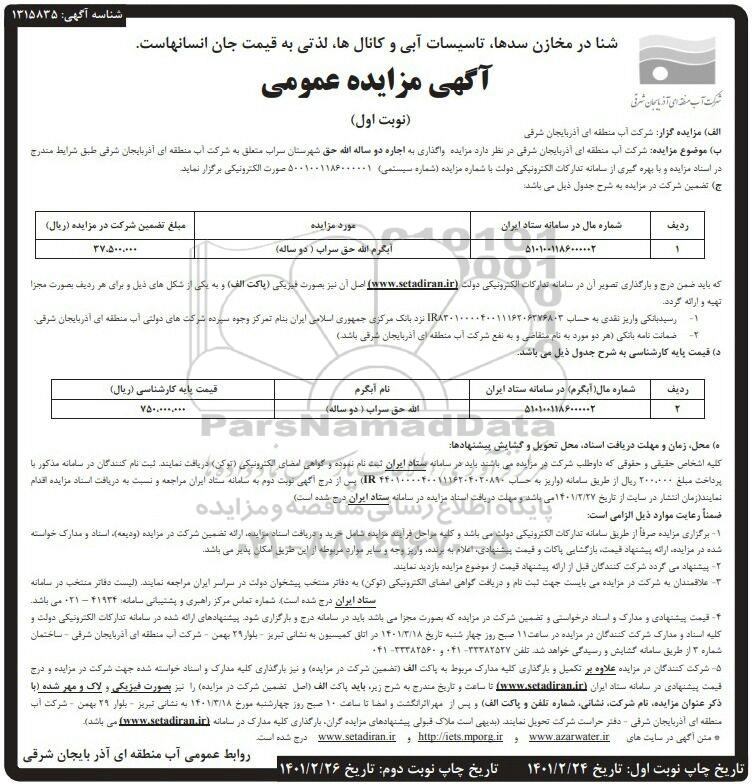 شناسه آگهی: ۱۳۱۵۸۳۵
شنا در مخازن سدها، تاسیسات آبی و کانال ها، لذتی به قیمت جان انسانهاست.
آگهی مزایده عمومی
(نوبت اول)
شرکت آب منطقه ای آذربایجان شرقی
الف) مزایده گزار: شرکت آب منطقه ای آذربایجان شرقی
ب) موضوع مزایده: شرکت آب منطقه ای آذربایجان شرقی در نظر دارد مزایده واگذاری به اجاره دو ساله الله حق شهرستان سراب متعلق به شرکت آب منطقه ای آذربایجان شرقی طبق شرایط مندرج
در اسناد مزایده و با بهره گیری از سامانه تدارکات الکترونیکی دولت با شماره مزایده (شماره سیستمی) ۵۰۰۱۰۰۱۱۸۶۰۰۰۰۰۱ صورت الکترونیکی برگزار نماید.
ج) تضمین شرکت در مزایده به شرح جدول ذیل می باشد:
ردیف شماره مال در سامانه ستاد ایران مورد مزایده مبلغ تضمین شرکت در مزایده (ریال)
۱ ۵۱۰۱۰۰۱۱۸۶۰۰۰۰۰۲ آبگرم الله حق سراب ( دو ساله) ۳۷.۵۰۰.۰۰۰
که باید ضمن درج و بارگذاری تصویر آن در سامانه تدارکات الکترونیکی دولت (www.setadiran.ir) اصل آن نیز بصورت فیزیکی (پاکت الف) و به یکی از شکل های ذیل و برای هر ردیف بصورت مجزا
تهیه و ارائه گردد.
۱- رسیدبانکی واریز نقدی به حساب IR۸۳۰۱۰۰۰۰۴۰۰۱۱۱۶۲۰۶۳۷۶۸۰۳ نزد بانک مرکزی جمهوری اسلامی ایران بنام تمرکز وجوه سپرده شرکت های دولتی آب منطقه ای آذربایجان شرقی.
۲- ضمانت نامه بانکی (هر دو مورد به نام متقاضی و به نفع شرکت آب منطقه ای آذربایجان شرقی می باشد.)
د) قیمت پایه کارشناسی به شرح جدول ذیل می باشد.
ردیف شماره مال(آبگرم) در سامانه ستاد ایران نام آبگرم قیمت پایه کارشناسی (ریال)
۲ ۵۱۰۱۰۰۱۱۸۶۰۰۰۰۰۲ الله حق سراب ( دو ساله) ۷۵۰.۰۰۰.۰۰۰
ه) محل، زمان و مهلت دریافت اسناد، محل تحویل و گشایش پیشنهادها:
کلیه اشخاص حقیقی و حقوقی که داوطلب شرکت در مزایده می باشند باید در سامانه ستاد ایران ثبت نام نموده و گواهی امضای الکترونیکی (توکن) دریافت نمایند. ثبت نام کنندگان در سامانه مذکور با
پرداخت مبلغ ۲۰۰.۰۰۰ ریال از طریق سامانه (واریز به حساب IR ۴۴۰۱۰۰۰۰۴۰۰۱۱۱۶۲۰۴۰۲۰۸۹۰) پس از درج آگهی نوبت دوم به سامانه ستاد ایران مراجعه و نسبت به دریافت اسناد مزایده اقدام
نمایند(زمان انتشار در سایت از تاریخ ۱۴۰۱/۲/۲۷می باشد و مهلت دریافت اسناد مزایده در سامانه ستاد ایران درج شده است)
ضمناً رعایت موارد ذیل الزامی است:
۱- برگزاری مزایده صرفاً از طریق سامانه تدارکات الکترونیکی دولت می باشد و کلیه مراحل فرآیند مزایده شامل خرید و دریافت اسناد مزایده، ارائه تضمین شرکت در مزایده (ودیعه)، اسناد و مدارک خواسته
شده در مزایده، ارائه پیشنهاد قیمت، بازگشایی پاکات و قیمت پیشنهادی، اعلام به برنده، واریز وجه و سایر موارد مربوطه از این طریق امکان پذیر می باشد.
۲- پیشنهاد می گردد شرکت کنندگان قبل از ارائه پیشنهاد قیمت از موضوع مزایده بازدید نمایند.
۳- علاقمندان به شرکت در مزایده می بایست جهت ثبت نام و دریافت گواهی امضای الکترونیکی (توکن) به دفاتر منتخب پیشخوان دولت در سراسر ایران مراجعه نمایند. (لیست دفاتر منتخب در سامانه
ستاد ایران درج شده است). شماره تماس مرکز راهبری و پشتیبانی سامانه: ۴۱۹۳۴ – ۰۲۱ می باشد.
۴- قیمت پیشنهادی و مدارک و اسناد درخواستی و تضمین شرکت در مزایده که بصورت مجزا می باشد باید در سامانه درج و بارگزاری شود. پیشنهادهای ارائه شده در سامانه تدارکات الکترونیکی دولت و
کلیه اسناد و مدارک شرکت کنندگان در مزایده در ساعت۱۱ صبح روز چهار شنبه تاریخ ۱۴۰۱/۳/۱۸ در اتاق کمیسیون به نشانی تبریز – بلوار۲۹ بهمن – شرکت آب منطقه ای آذربایجان شرقی – ساختمان
شماره ۳ از طریق سامانه گشایش و رسیدگی خواهد شد. تلفن ۳۳۳۸۲۵۲۷-۰۴۱ و ۳۳۳۸۲۵۶۰-۰۴۱
۵- شرکت کنندگان در مزایده علاوه بر تکمیل و بارگذاری کلیه مدارک مربوط به پاکت الف (تضمین شرکت در مزایده) و نیز بارگزاری کلیه مدارک و اسناد خواسته شده جهت شرکت در مزایده و درج
قیمت پیشنهادی در سامانه ستاد ایران (www.setadiran.ir) تا ساعت و تاریخ مندرج به شرح زیر، باید پاکت الف (اصل تضمین شرکت در مزایده) را نیز بصورت فیزیکی و لاک و مهر شده (با
ذکر عنوان مزایده، نام شرکت، نشانی، شماره تلفن و پاکت الف) و پس از مهر/اثرانگشت و امضا تا ساعت ۱۰ صبح روز چهارشنبه مورخ ۱۴۰۱/۳/۱۸ به نشانی تبریز – بلوار ۲۹ بهمن – شرکت آب
منطقه ای آذربایجان شرقی - دفتر حراست شرکت تحویل نمایند. (بدیهی است ملاک قبولی پیشنهادهای مزایده گران، بارگذاری کلیه مدارک در سامانه (www.setadiran.ir) می باشد).
* متن آگهی در سایت های www.azarwater.ir و http://iets.mporg.ir و www.setadiran.ir درج شده است.
روابط عمومی آب منطقه ای آذر بایجان شرقی
تاریخ چاپ نوبت اول: تاریخ ۱۴۰۱/۲/۲۴ تاریخ چاپ نوبت دوم: تاریخ ۱۴۰۱/۲/۲۶
ParsNamadData
پایگاه اطلاع رسانی مناقصه و مزایده